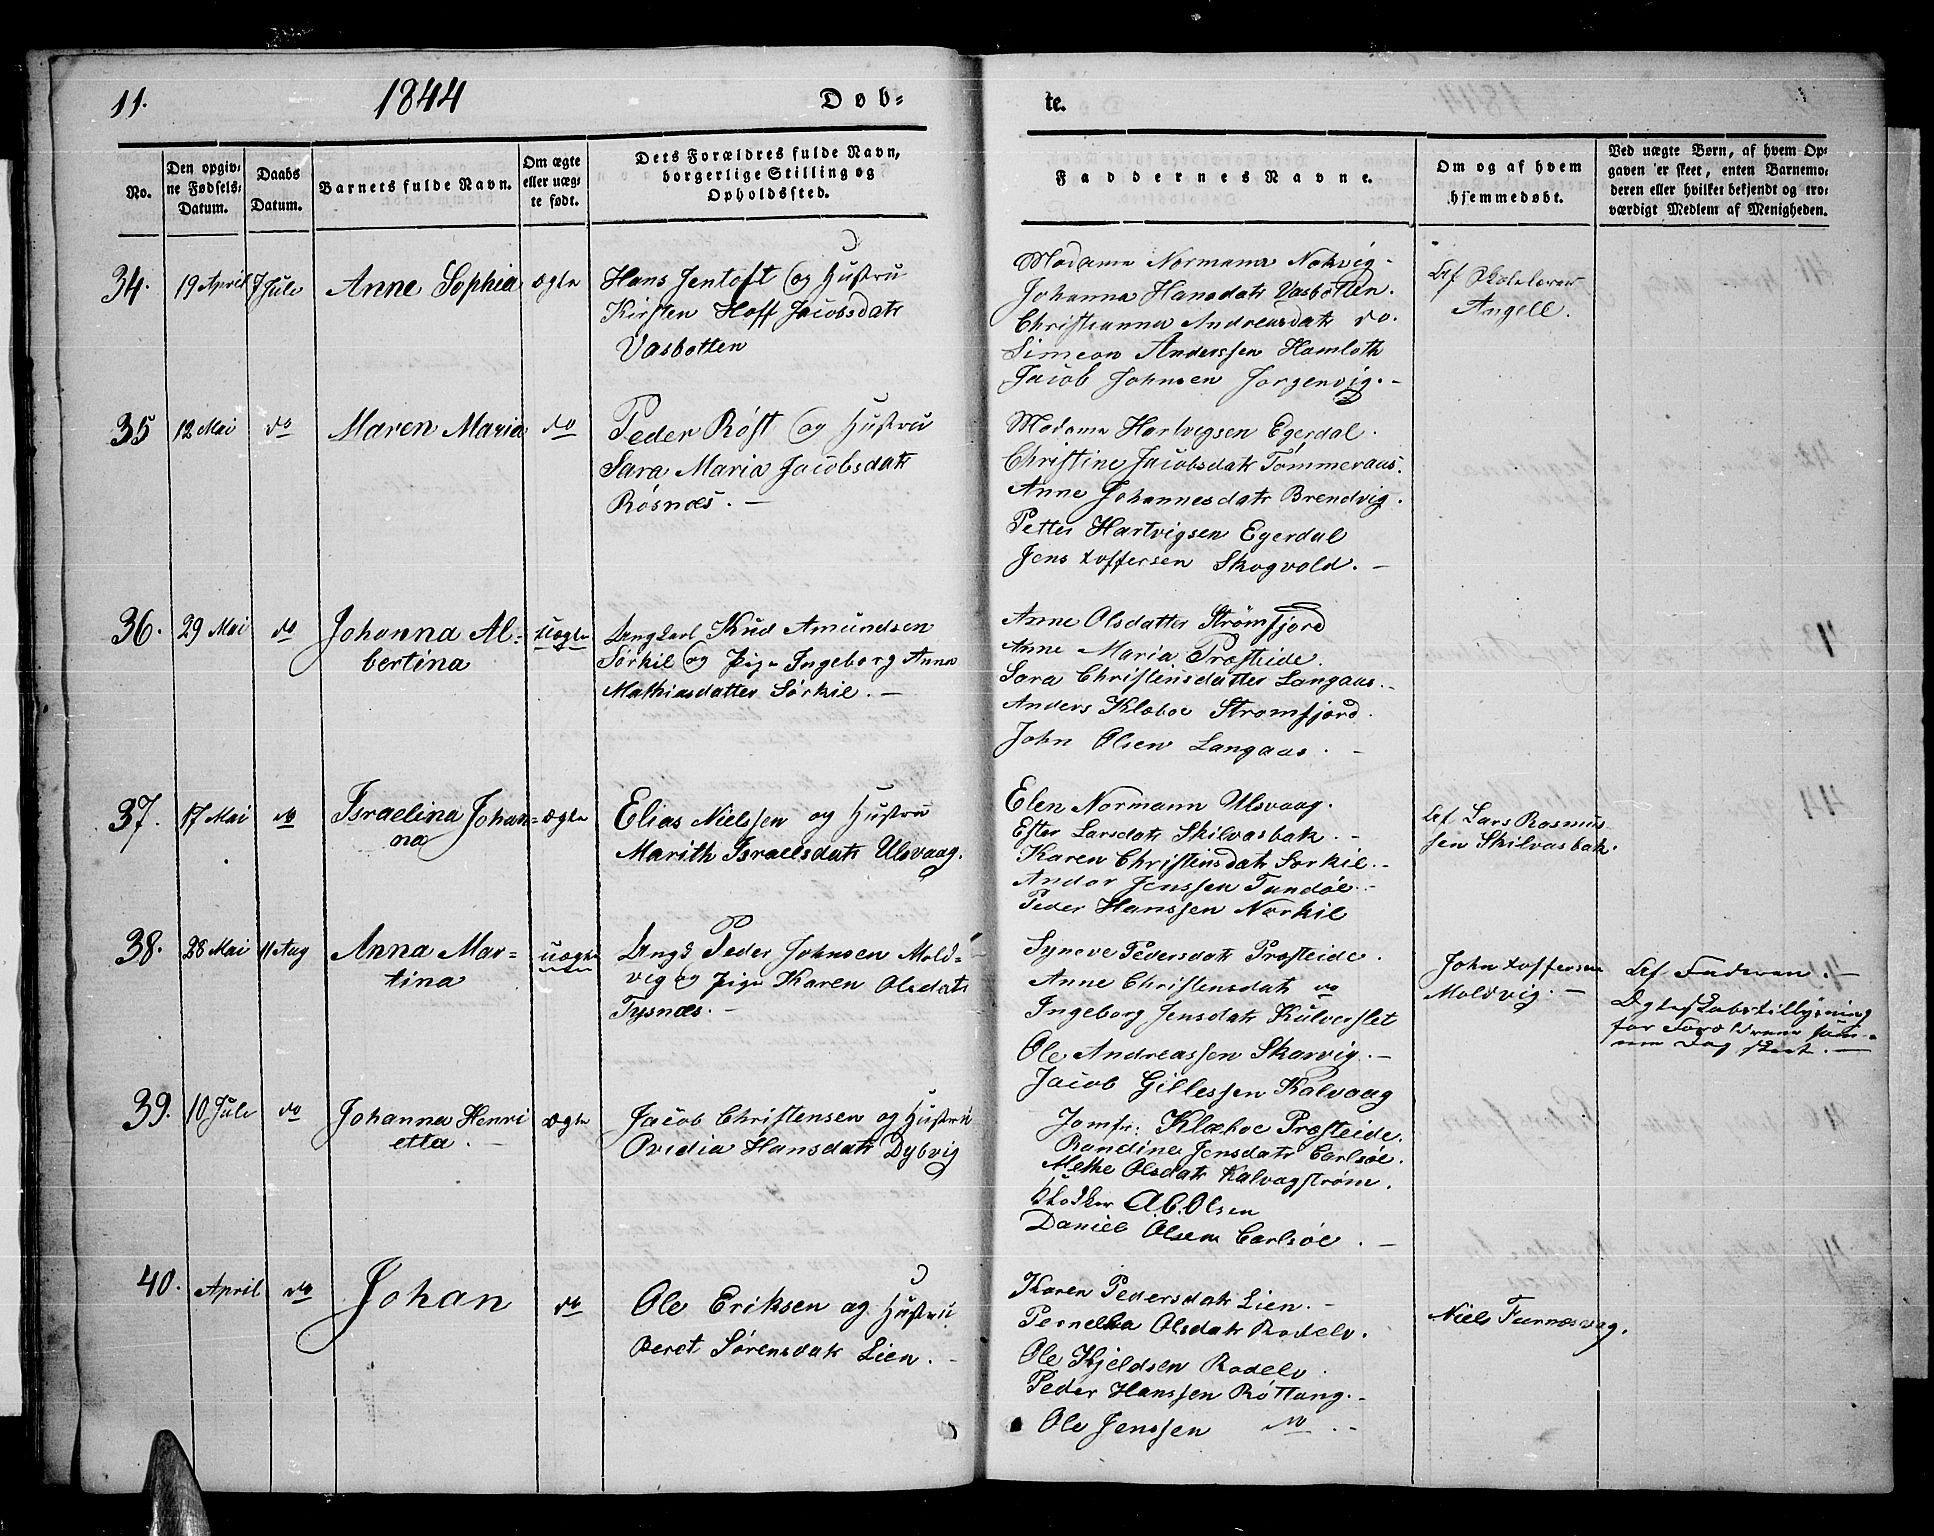 11.
1844
Døb-
te.
No.
Den opgiv-
ne Fødsels-
Datum.
Daabs
Datum.
Barnets fulde Navn.
Om ægte
eller uæg-
te født.
Dets Forældres fulde Navn,
borgerlige Stilling og
Opholdssted.
Faddernes Navne.
Om og af hvem
hjemmedøbt.
Ved uægte Børn, af hvem Op-
gaven er skeet, enten Barnemo-
deren eller hvilket bekjendt og tro-
værdigt Medlem af Menigheden.
34. 19 April 7 Jule Anne Sophia ægte
Hans Jentoft og Hustru
Kirsten Hoff Jacobsdatr
Vasbotten
Madame Normann Nokvig.
Johanna Hansdatr Vasbotten.
Christianna Andreasdatr do.
Simeon Anderssen Hamloth
Jacob Johnsen Jorgenvig.
Af Skolelærer
Angell.
35 12 Mai do Maren Maria do
Peder Röst og Hustru
Sara Maria Jacobsdatr
Rösnæs.
Madame Hartvigsen Egerdal.
Christine Jacobsdatr Tömmeraas.
Anne Johannesdatr Brendvig.
Petter Hartvigsen Egerdal
Jens Toffersen Skogvold.
36. 29 Mai do Johanna Al-
bertina
uægte
Ungkarl Knud Amundsen
Sørkil og Pige Ingeborg Anna
Mathiasdatter Sørkil.
Anne Olsdatter Strømfjord
Anne Maria Præsteide.
Sara Christensdatter Langaas.
Anders Klæboe Strømfjord.
John Olsen Langaas.
37. 17 Mai do Israelina Johan-
na
ægte
Elias Nielssen og Hustru
Marith Israelsdatr Ulsvaag.
Elen Normann Ulsvaag.
Ester Larsdatr Skilvasbak.
Karen Christensdatr Sørkil.
Andor Jenssen Tundöe.
Peder Hanssen Norkil
Af Lars Rasmus
sen Skilvasbak.
38. 28 Mai 11 Aug Anna Mar-
tina
uægte
Ungk Peder Johnsen Mold-
vig og Pige Karen Olsdatr
Tysnæs.
Syneve Pedersdatr Præsteide.
Anne Christensdatr do
Ingeborg Jensdatr Kulverslet
Ole Andreassen Skarvig.
Jacob Gillessen Kalvaag
John Toffersen
Moldvig.
Af Faderen.
Ægteskabstillysning
for Forældrene sam-
me Dag skeet.
39. 10 Jule do Johanna Henri
etta.
ægte
Jacob Christensen og Hustru
Ovidia Hansdatr Dybvig
Jomfr: Klæboe Præsteide.
Randine Jensdatr Carlsöe.
Mette Olsdatr Kalvagstrøm.
A.C. Olsen
Daniel Olsen Carlsöe.
40. April do Johan do
Ole Eriksen og Hustru
Beret Sørensdatr Lien.
Karen Pedersdatr Lien.
Pernella Olsdatr Rodelv.
Ole Kjeldsen Rodelv.
Peder Hanssen Röttang.
Ole Jenssen do
Niels Furnesvag.